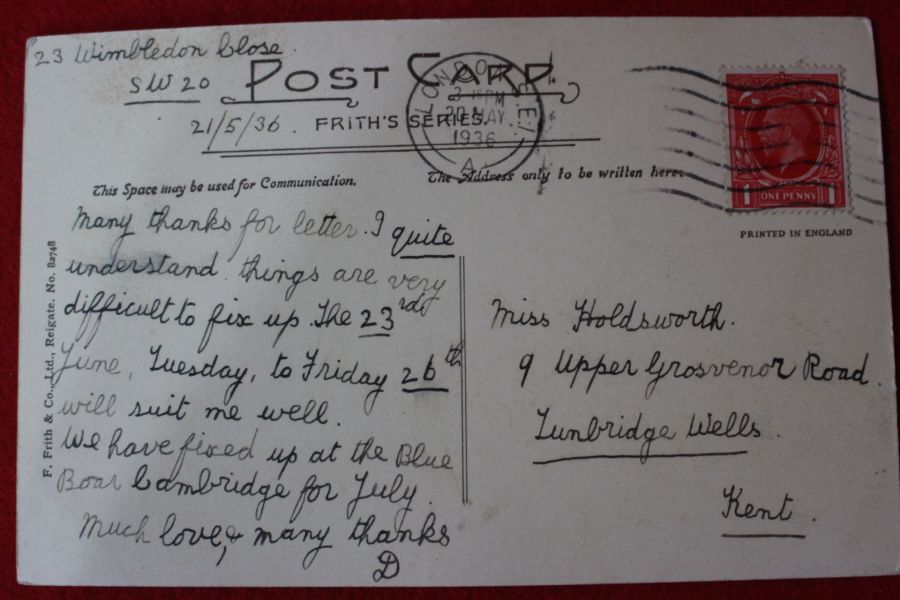 23 Wimbledon Close.
SW 20
POST CARD.
21/5/36. FRITH'S SERIES.
LONDON
3 15 PM
20 MAY
1936
A
This Space may be used for Communication.
The Address only to be written here.
1 ONE PENNY 1
PRINTED IN ENGLAND
F. Frith & Co., Ltd., Reigate. No. 82748
Many thanks for letter. I quite
understand things are very
difficult to fix up. The 23rd
June, Tuesday, to Friday 26th
will suit me well.
We have fixed up at the Blue
Boar Cambridge for July.
Much love, & many thanks
D
Miss Holdsworth.
9 Upper Grosvenor Road.
Tunbridge Wells.
Kent.